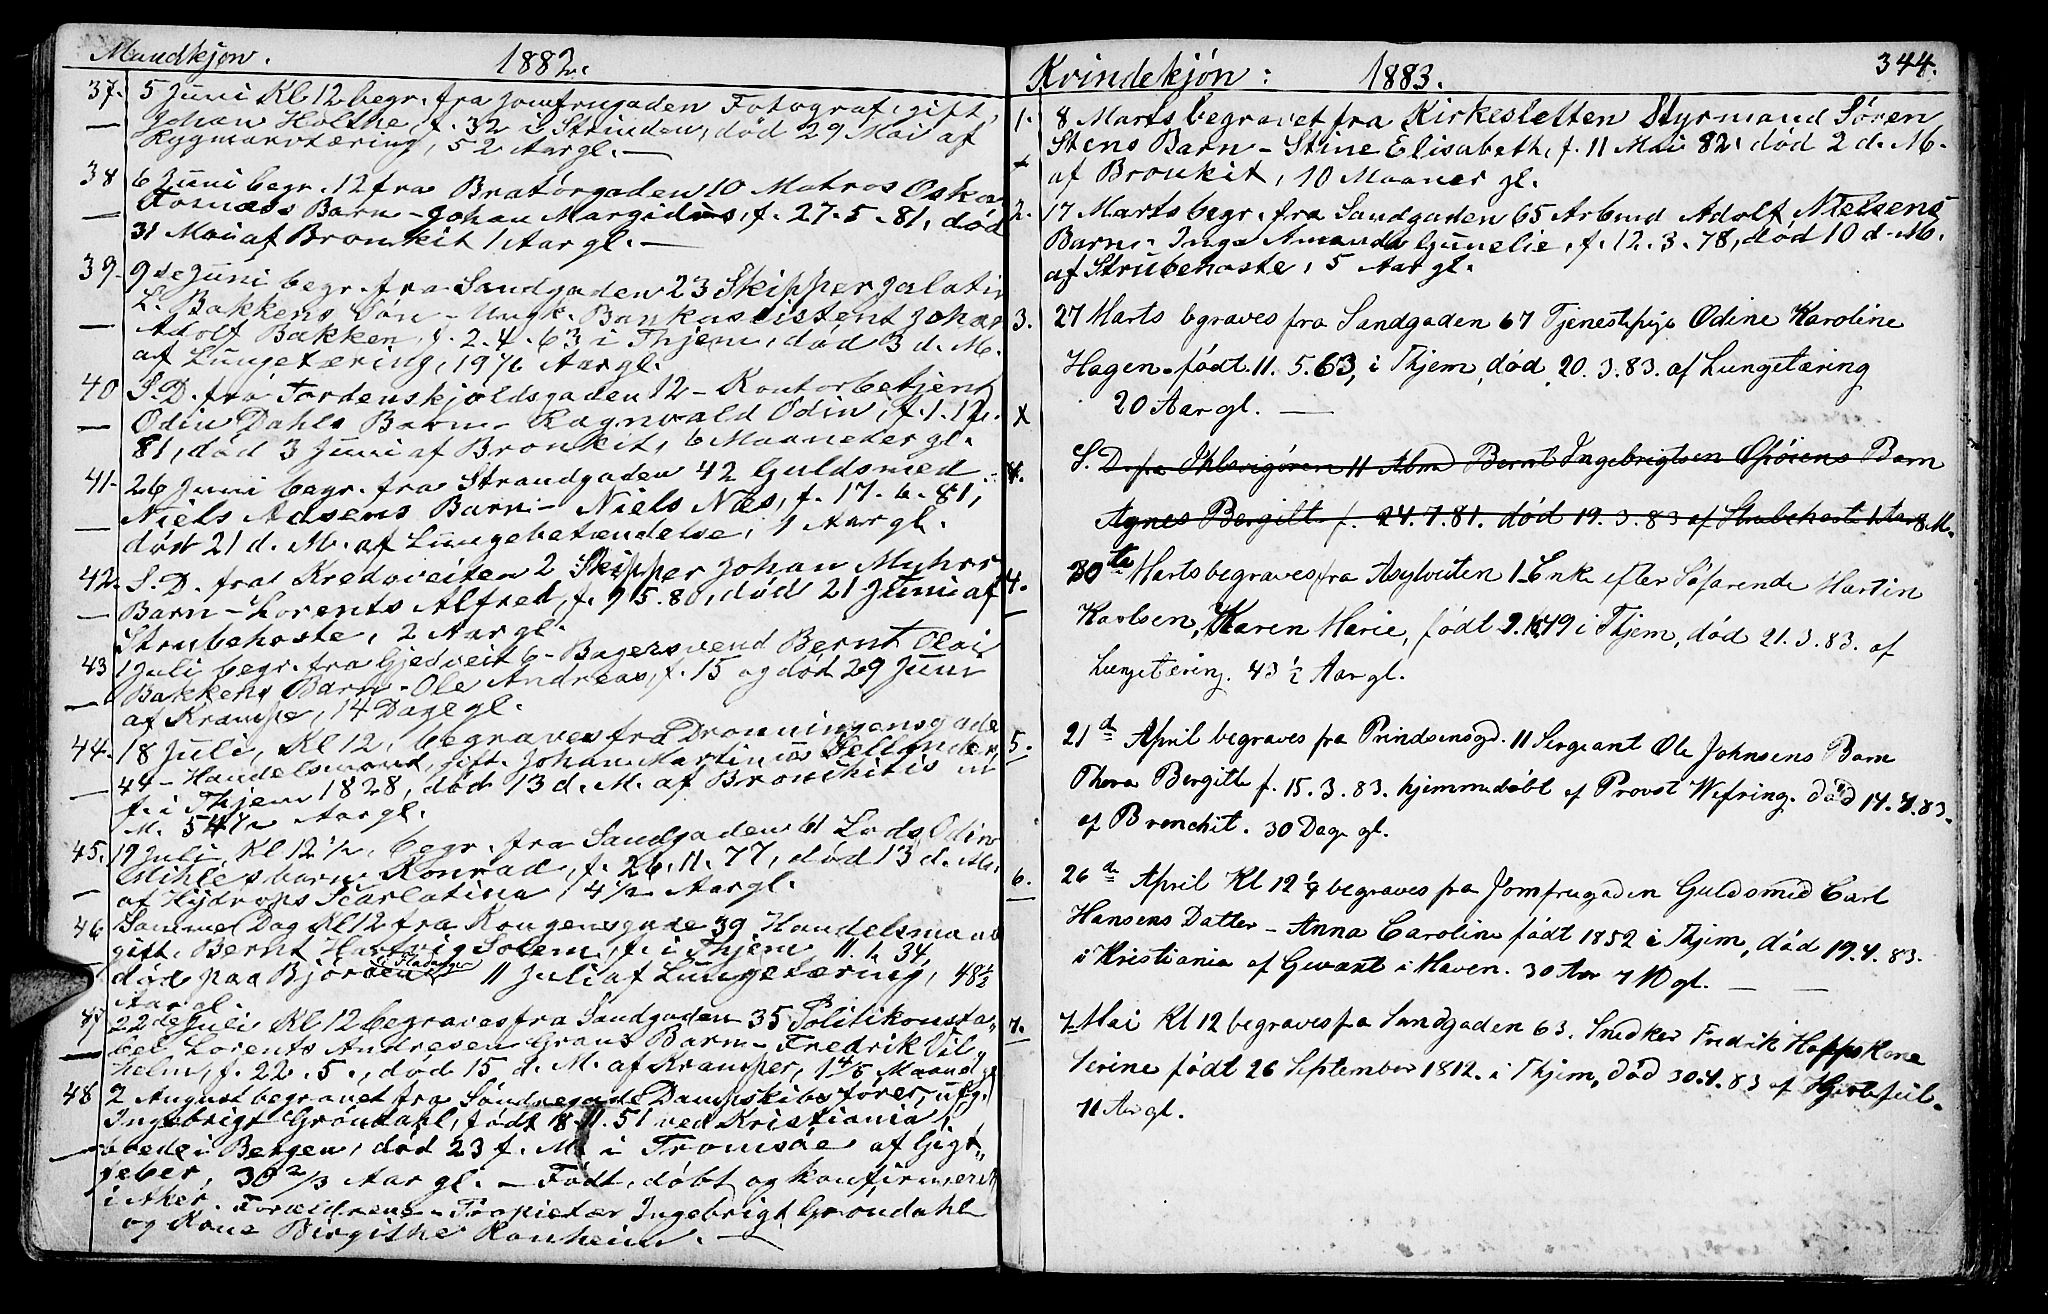 Mandkjøn. 1882.
37. 5 Juni Kl 12 begr. fra Jomfrugaden Fotograf, gift,
Johan Holthe, f. 32 i Strinden, død 29 Mai af
Rygmarvtæring, 52 Aar gl. —
38 6 Juni begr. 12 fra Bratørgaden 10 Matros Oskar
Fornæss Barn – Johan Margidius, f. 27-5-81, død
31 Mai af Bronkit 1 Aar gl. —
39. 9de Juni begr. fra Sandgaden 23 Skipper
L. Bakkens Søn – Ungk. Bankassistent Johan
Adolf Bakken, f. 2.4.63 i Thjem, død 3 d. M.
af Lungetæring, 19 1/6 Aar gl.
40 S. D. fra Tordenskjoldsgaden 12 – Kontorbetjent
Odin Dahls Barn – Ragnvald Odin, f. 1.12.
81, død 3 Juni af Bronkit, 6 Maaneder gl.
41. 26 Juni begr. fra Strandgaden 42 Guldsmed
Niels Aasens Barn – Niels Næs, f. 17.6.81,
død 21 d. M. af Lungebetændelse, 1 Aar gl.
42. S. D. fra Kredsveiten 2 Skipper Johan Myhrs
Barn – Lorents Alfred, f. 9 5.80, død 21 Juni af
Strubehoste, 2 Aar gl.
43 1 Juli begr. fra Gjedveit 6 – Bagersvend Bernt Olai
Bakkens Barn – Ole Andreas, f. 15 og død 29 Juni
af Krampe, 14 Dage gl.
44. 18 Juli, Kl 12, begraves fra Dronningensgade
44 – Handelsmand, gift. Johan Martinus
f. i Thjem 1828, død 13 d. M. af Bronchitis
M. 54 1/2 Aar gl.
45. 19 Juli, Kl 12 1/2, begr. fra Sandgaden 61 Lods Odin
barn Konrad, f. 26.11.77, død 13 d. M.
af Hydrops Scarlatina, 4 1/2 Aar gl.
46 Sammel Dag Kl 12 fra Kongensgade 39 Handelsmand
gift. Bernt Hartvig Solem, f. i Thjem 11.1.34,
død paa 11 Juli af Lungetæring, 48 1/2
Aar gl
47 22de Juli Kl 12 begraves fra Sandgaden 35 Politikonsta-
bel Lorents Andresen Grans Barn – Fredrik Vil-
helm, f. 22.5., død 15 d. M. af Kramper, 1 4/5 Maaned gl
48 2 August begravet fra Søndregade Dampskibsfører, ugg.
Ingebrigt Grøndahl, født 8.11.51 ved Kristiania,
boede i Bergen, død 23 f. M. i Tromsøe af Gigt-
feber, 30 2/3 Aar gl. – Født, døbt og konfirmeret
i Aker. Forældrene – Propietær Ingebrigt Grøndahl
og Kone Birgithe Ronheim. —
Kvindekjøn: 1883. 344.
1. 8 Marts begravet fra Kirkesletten Styrmand Søren
Stens Barn – Stine Elisabeth, f. 11 Mai 82, død 2 d. M.
+ af Bronkit, 10 Maaner gl.
2. 17 Marts begr. fra Sandgaden 65 Arbmd Adolf Nielsens
Barn – Inga Amanda Gunelie, f. 12.3.78, død 10 d. M.
af Strubehoste, 5 Aar gl.
3. 27 Marts bgraves fra Sandgaden 67 Tjenestepige Odine Karoline
Hagen født 11.5.63, i Thjem, død 20.3.83. af Lungetæring
x 20 Aar gl. —
4. S. D. fra 11 Abmd Bernt Ingebrigtsen Barn
Agnes Bergitt f. 24.7.81. død 19.3.83 af Strubehoste 1 Aar 8 M.
4. 30te Marts begraves fra Asylveiten 1 Enke efter Søfarende Martin
Karlsen, Karen Marie, født i Thjem, død 21.3.83. af
Lungetæring. 43 1/2 Aar gl.
5. 21de April begraves fra Prindsensgd. 11 Sergeant Ole Johnsens Barn
Thora Bergitte f. 15.3.83. hjemmedøbt af Provst Wefring. død 14.4.83.
af Bronchit. 30 Dage gl.
6. 26de April Kl 12 1/4 begraves fra Jomfrugaden Guldsmed Carl
Hansens Datter – Anna Caroline født 1852 i Thjem, død 19.4.83.
i Kristiania af Gevæxt i Maven. 30 Aar 7 M gl. — —
7. 7 Mai Kl 12 begraves fra Sandgaden 63. Snedker Fredrik Hopps Kone
Serine født 26 September 1812. i Thjem, død 30.4.83 af Hjertefeil.
71 Aar gl.